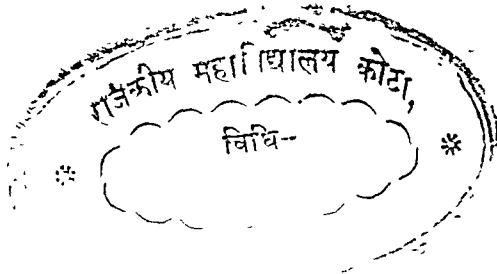 राजकीय महाविद्यालय कोटा,
विधि--